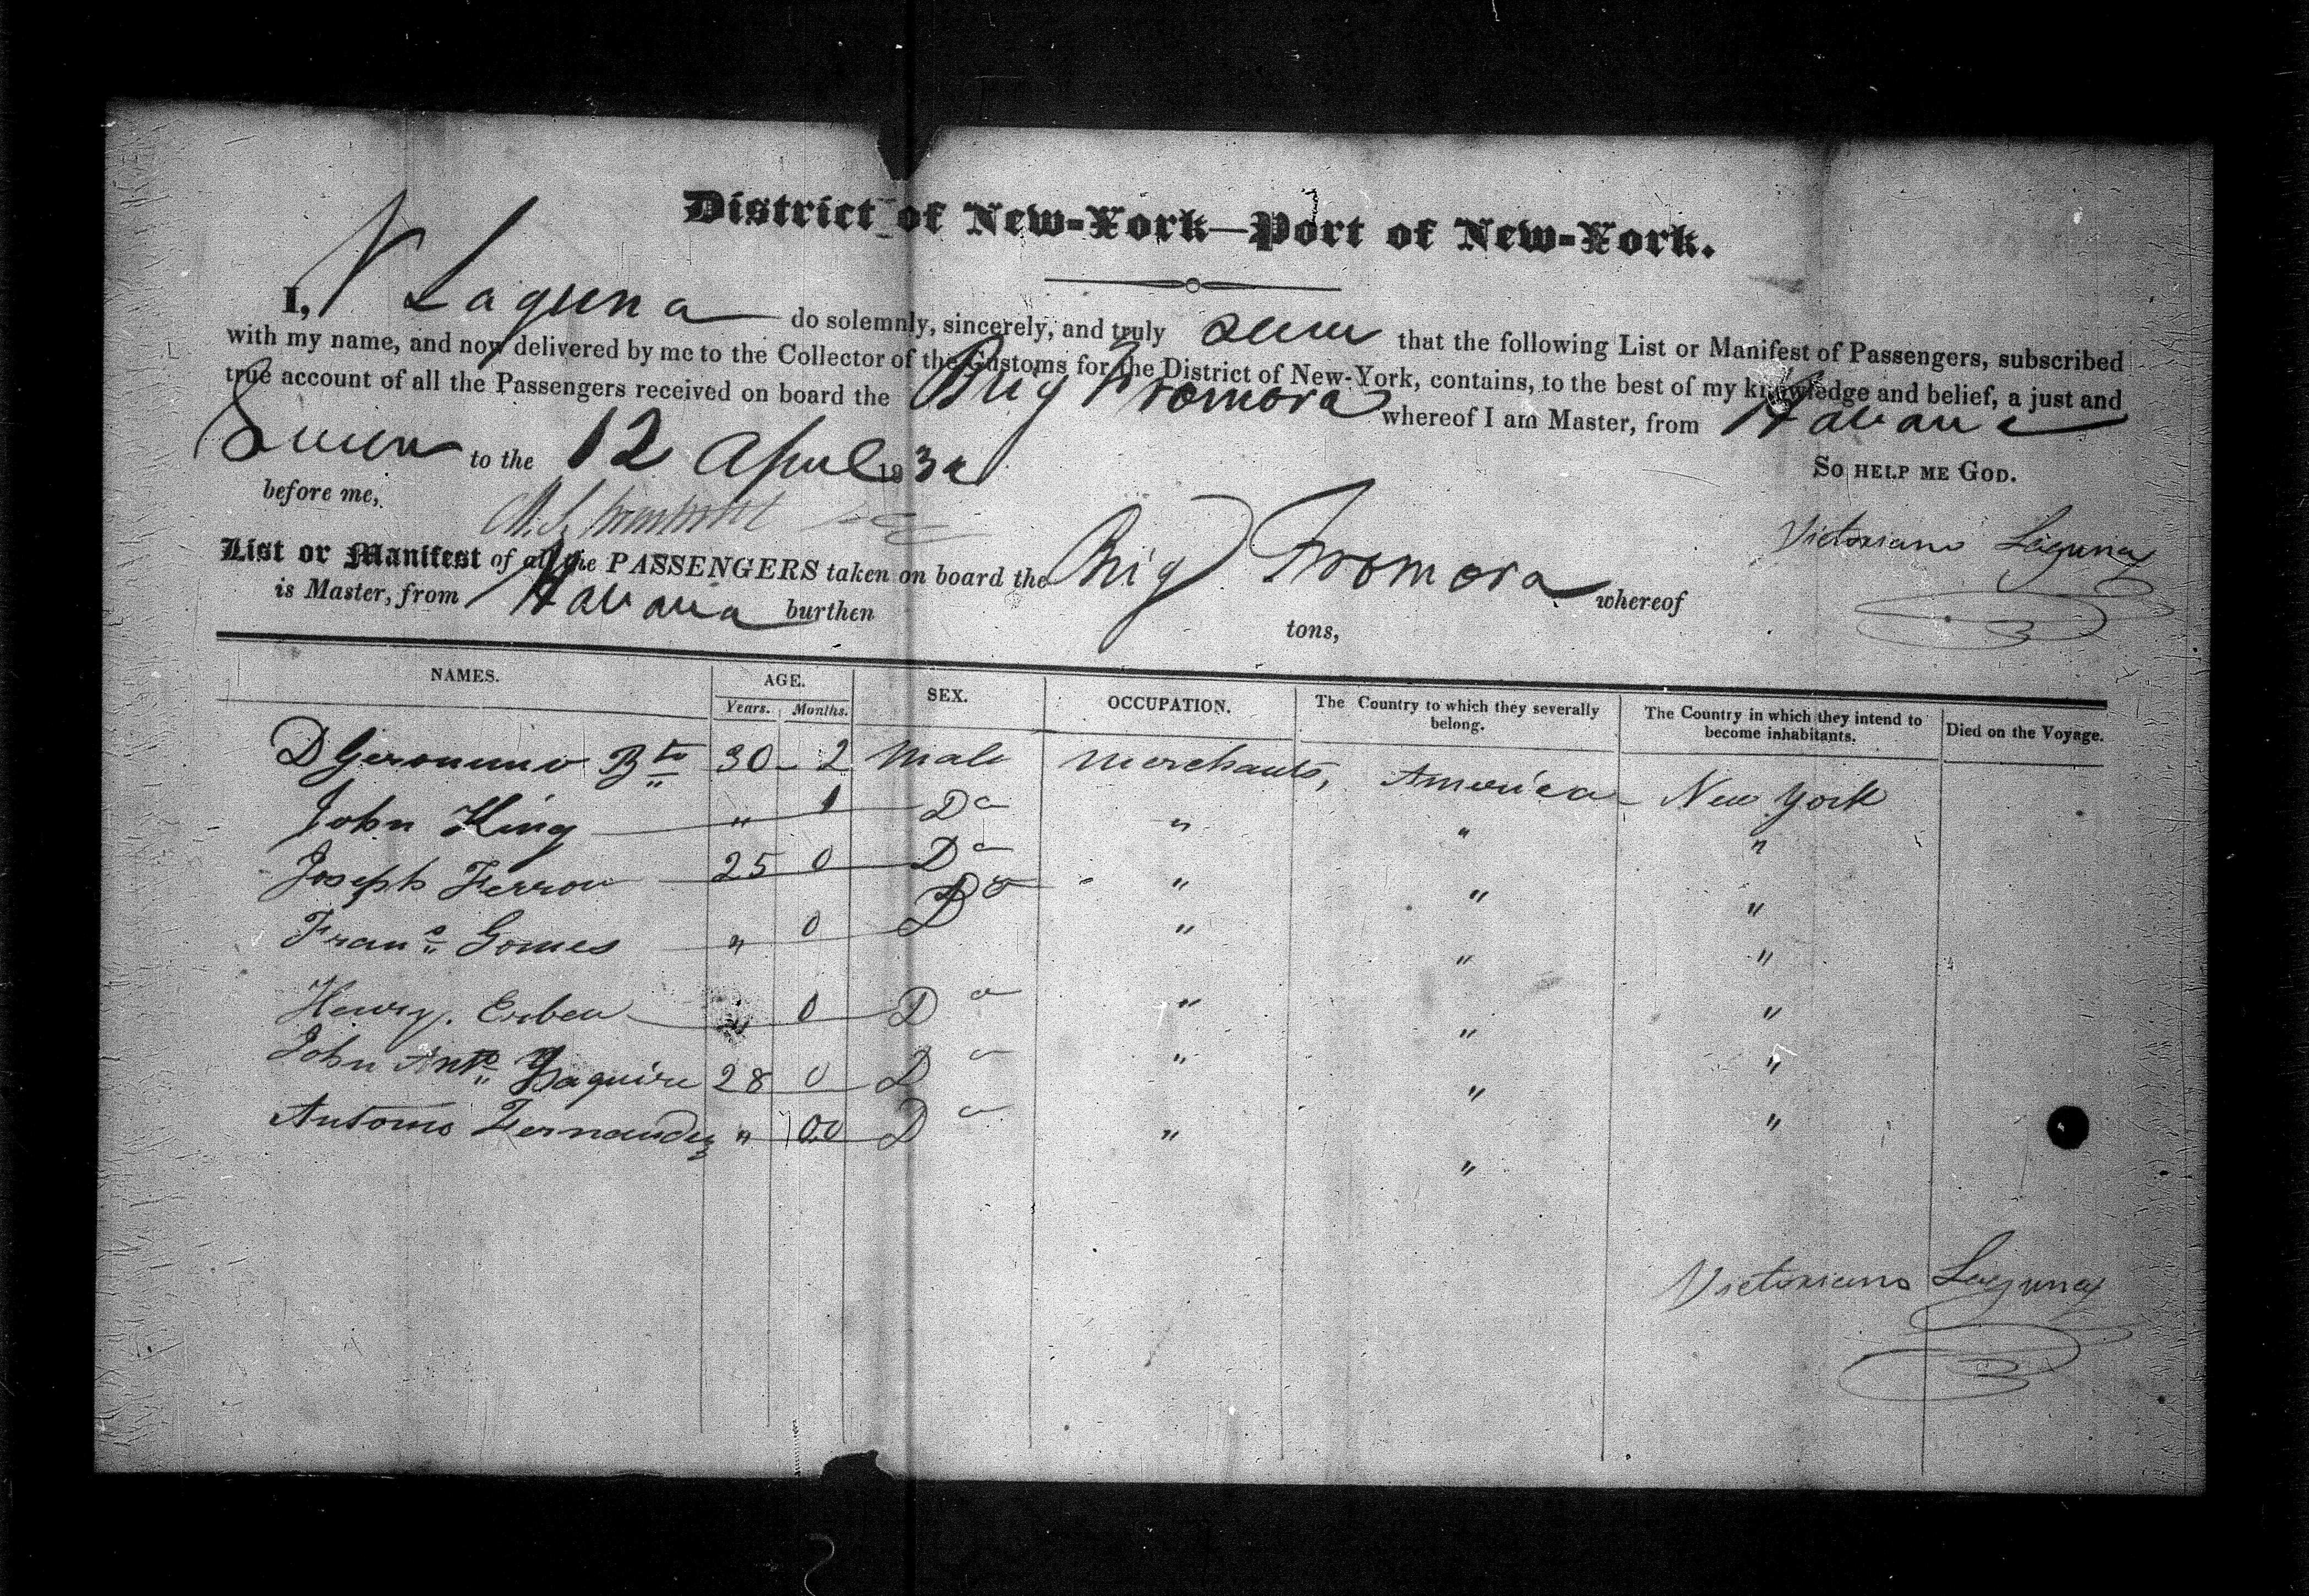 District of New-York—Port of New-York.
I, V Laguna do solemnly, sincerely, and truly that the following List or Manifest of Passengers, subscribed
with my name, and now delivered by me to the Collector of the Customs for the District of New-York, contains, to the best of my knowledge and belief, a just and
true account of all the Passengers received on board the Brig whereof I am Master, from Havana
Sworn to the 12 April 183 So help me God.
before me,
Victoriano Laguna
List or Manifest of all the PASSENGERS taken on board the Brig whereof
is Master, from Havana burthen tons,
NAMES. AGE. SEX. OCCUPATION. The Country to which they severally belong. The Country in which they intend to become inhabitants. Died on the Voyage.
Years. Months.
D Geronimo Bto 30 - 2 Male Merchants, America New York
John King " 1 Do " " "
Joseph Ferrou 25 0 Do " " "
Franco Gomes " 0 Do " " "
Henry. Erben " 0 Do " " "
John Anto Yzaguire 28 0 Do " " "
Antonio Fernandez " 00 Do " " "
Victoriano Laguna